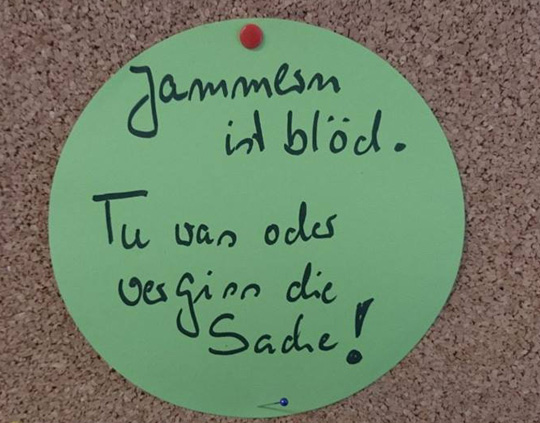 Jammern
ist blöd.
Tu was oder
vergiss die
Sache!